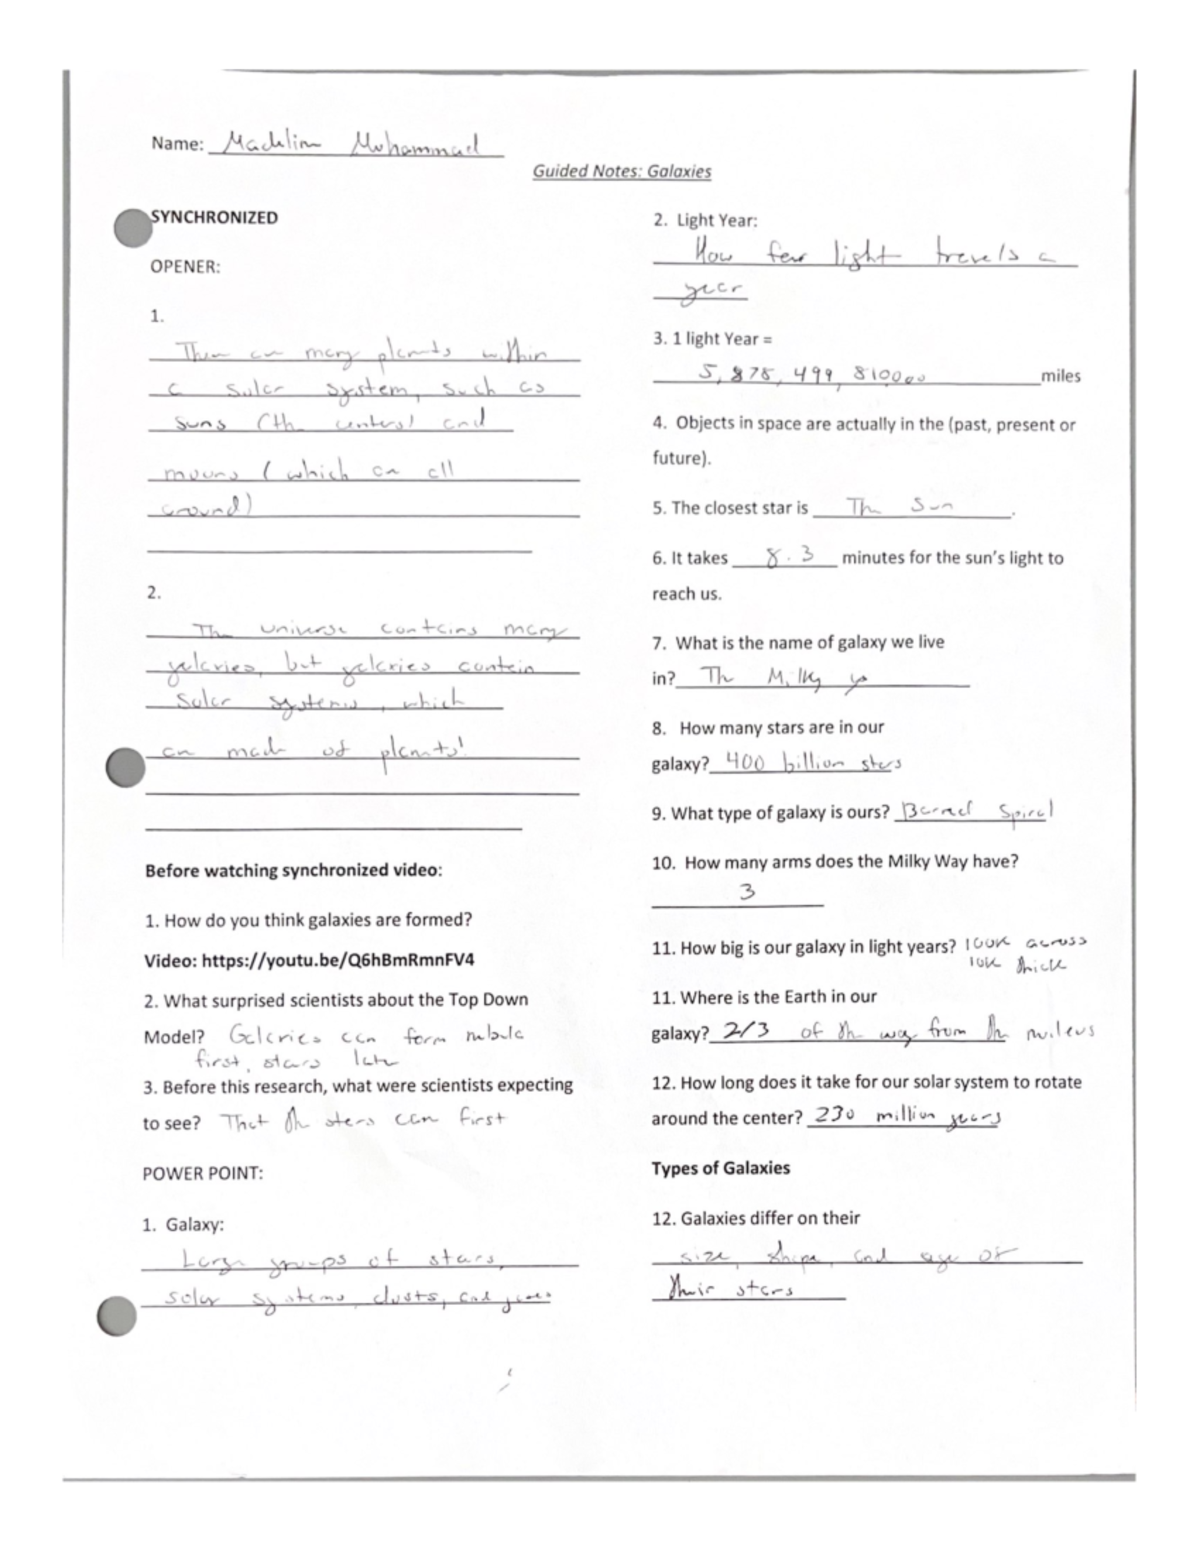 Name: Madeline Mohammad
Guided Notes: Galaxies
SYNCHRONIZED
OPENER:
1.
There are many planets within
a solar system, such as
suns (the centers) and
moons (which are all
around)
2.
The universe contains many
galaxies, but galaxies contain
solar systems, which
are made of planets!
Before watching synchronized video:
1. How do you think galaxies are formed?
Video: https://youtu.be/Q6hBmRmnFV4
2. What surprised scientists about the Top Down
Model? Galaxies can form nebula
first, stars later
3. Before this research, what were scientists expecting
to see? That the stars came first
POWER POINT:
1. Galaxy:
Large groups of stars,
solar systems, dusts, and gases
2. Light Year:
How far light travels a
year
3. 1 light Year =
5,878,499,810000 miles
4. Objects in space are actually in the (past, present or
future).
5. The closest star is The Sun.
6. It takes 8.3 minutes for the sun's light to
reach us.
7. What is the name of galaxy we live
in? The Milky
8. How many stars are in our
galaxy? 400 billion stars
9. What type of galaxy is ours? Barred Spiral
10. How many arms does the Milky Way have?
3
11. How big is our galaxy in light years? 100K across
10K thick
11. Where is the Earth in our
galaxy? 2/3 of the way from the nucleus
12. How long does it take for our solar system to rotate
around the center? 230 million years
Types of Galaxies
12. Galaxies differ on their
size, shape, and age of
their stars